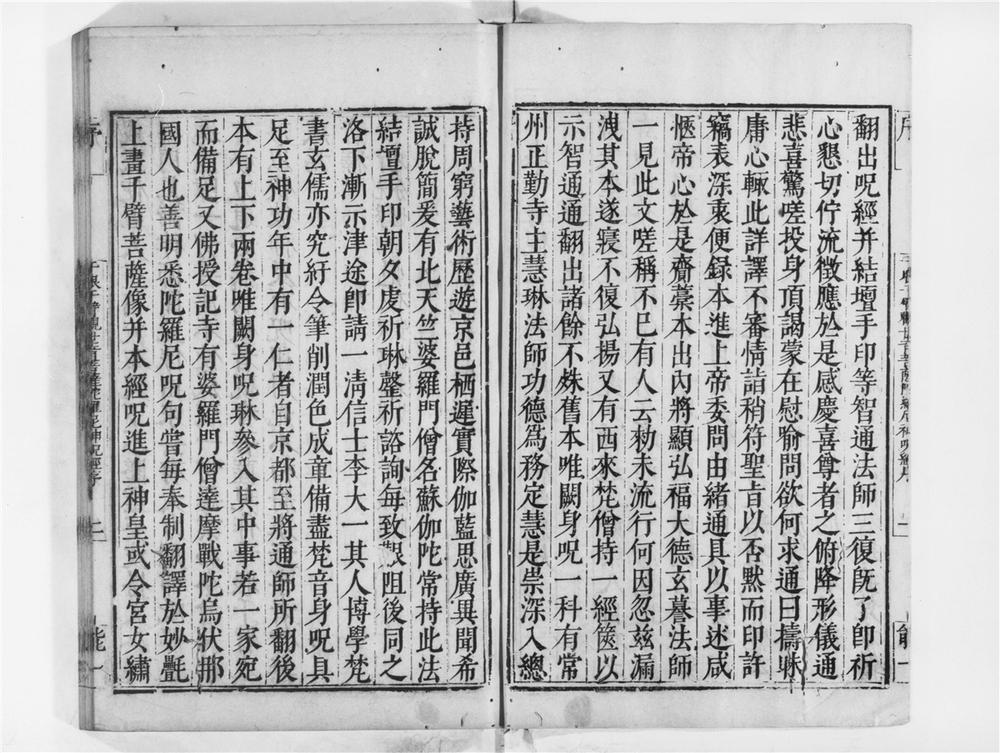 翻出呪經并結壇手印等智通法師三復旣了卽祈
心懇切佇流徵應於是感慶喜尊者之俯降形儀通
悲喜驚嗟投身頂謁蒙在慰喻問欲何求通曰擣昧
庸心輙此詳譯不審情詣稍符聖旨以否默而印許
竊表深衷便録本進上帝委問由緖通具以事述咸
愜帝心於是齎藁本出內將顯弘福大德玄暮法師
一見此文嗟稱不巳有人云勑未流行何因忽兹漏
洩其本遂寢不復弘揚又有西來梵僧持一經篋以
示智通通翻出諸餘不殊舊本唯闕身呪一科有常
州正勤寺主慧琳法師功德爲務定慧是崇深入總
持周窮藝術歷遊京邑栖遲實際伽藍思廣異聞希
誠脫簡爰有北天竺婆羅門僧名蘇伽陀常持此法
結壇手印朝夕虔祈琳罄祈諮詢每致艱阻後同之
洛下漸示津途卽請一淸信士李大一其人博學梵
書玄儒亦究紆令筆削潤色成章備盡梵音身呪具
足至神功年中有一仁者自京都至將通師所翻後
本有上下兩卷唯闕身呪琳參入其中事若一家宛
而備足又佛授記寺有婆羅門僧達摩戰陀烏伏那
國人也善明悉陀羅尼呪句嘗每奉制翻譯於妙氎
上畫千臂菩薩像并本經呪進上神皇或令宮女繡
序
二
能一